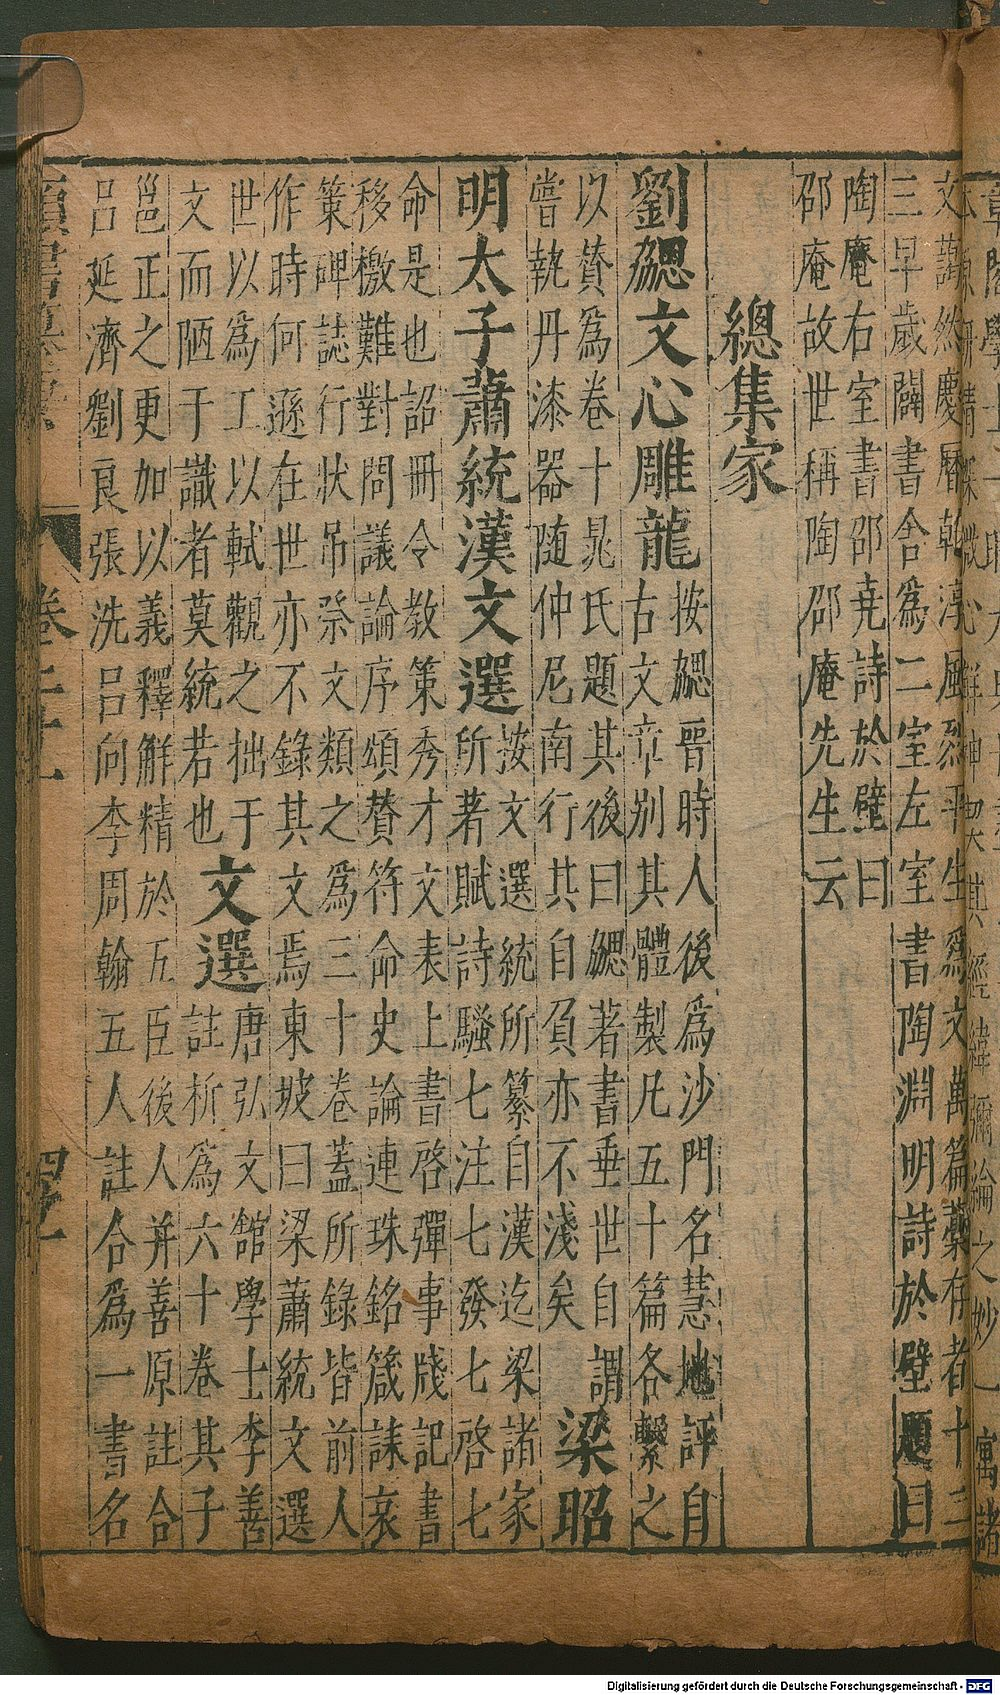 文譪然慶曆乾淳風烈平生爲文萬篇藁存者十三
三早歲闢書舍爲二室左室書陶淵明詩於壁題曰
陶庵右室書邵堯詩於壁曰
邵庵故世稱陶邵庵先生云
總集家
劉勰文心雕龍
按勰晉時人後爲沙門名慧地評自
古文文章別其體製凡五十篇各繫之
以賛爲卷十晁氏題其後曰勰著書垂世自謂
嘗執丹漆器随仲尼南行其自負亦不淺矣
梁昭
明太子蕭統漢文選
按文選統所纂自漢迄梁諸家
所著賦詩騷七注七發七啓七
命是也詔冊令教策秀才文表上書啓彈事牋記書
移檄難對問議論序頌賛符命史論連珠銘箴誄哀
策碑誌行狀吊祭文類之爲三十卷蓋所錄皆前人
作時何遜在世亦不錄其文焉東坡曰梁蕭統文選
世以爲工以軾觀之拙于
文而陋于識者莫統若也
文選
唐弘文舘學士李善
註析爲六十卷其子
邕正之更加以義釋解精於五臣後人并善原註合
呂延濟劉良張洗呂向李周翰五人註合爲一書名
卷二十一
四十一
Digitalisierung gefördert durch die Deutsche Forschungsgemeinschaft - DFG